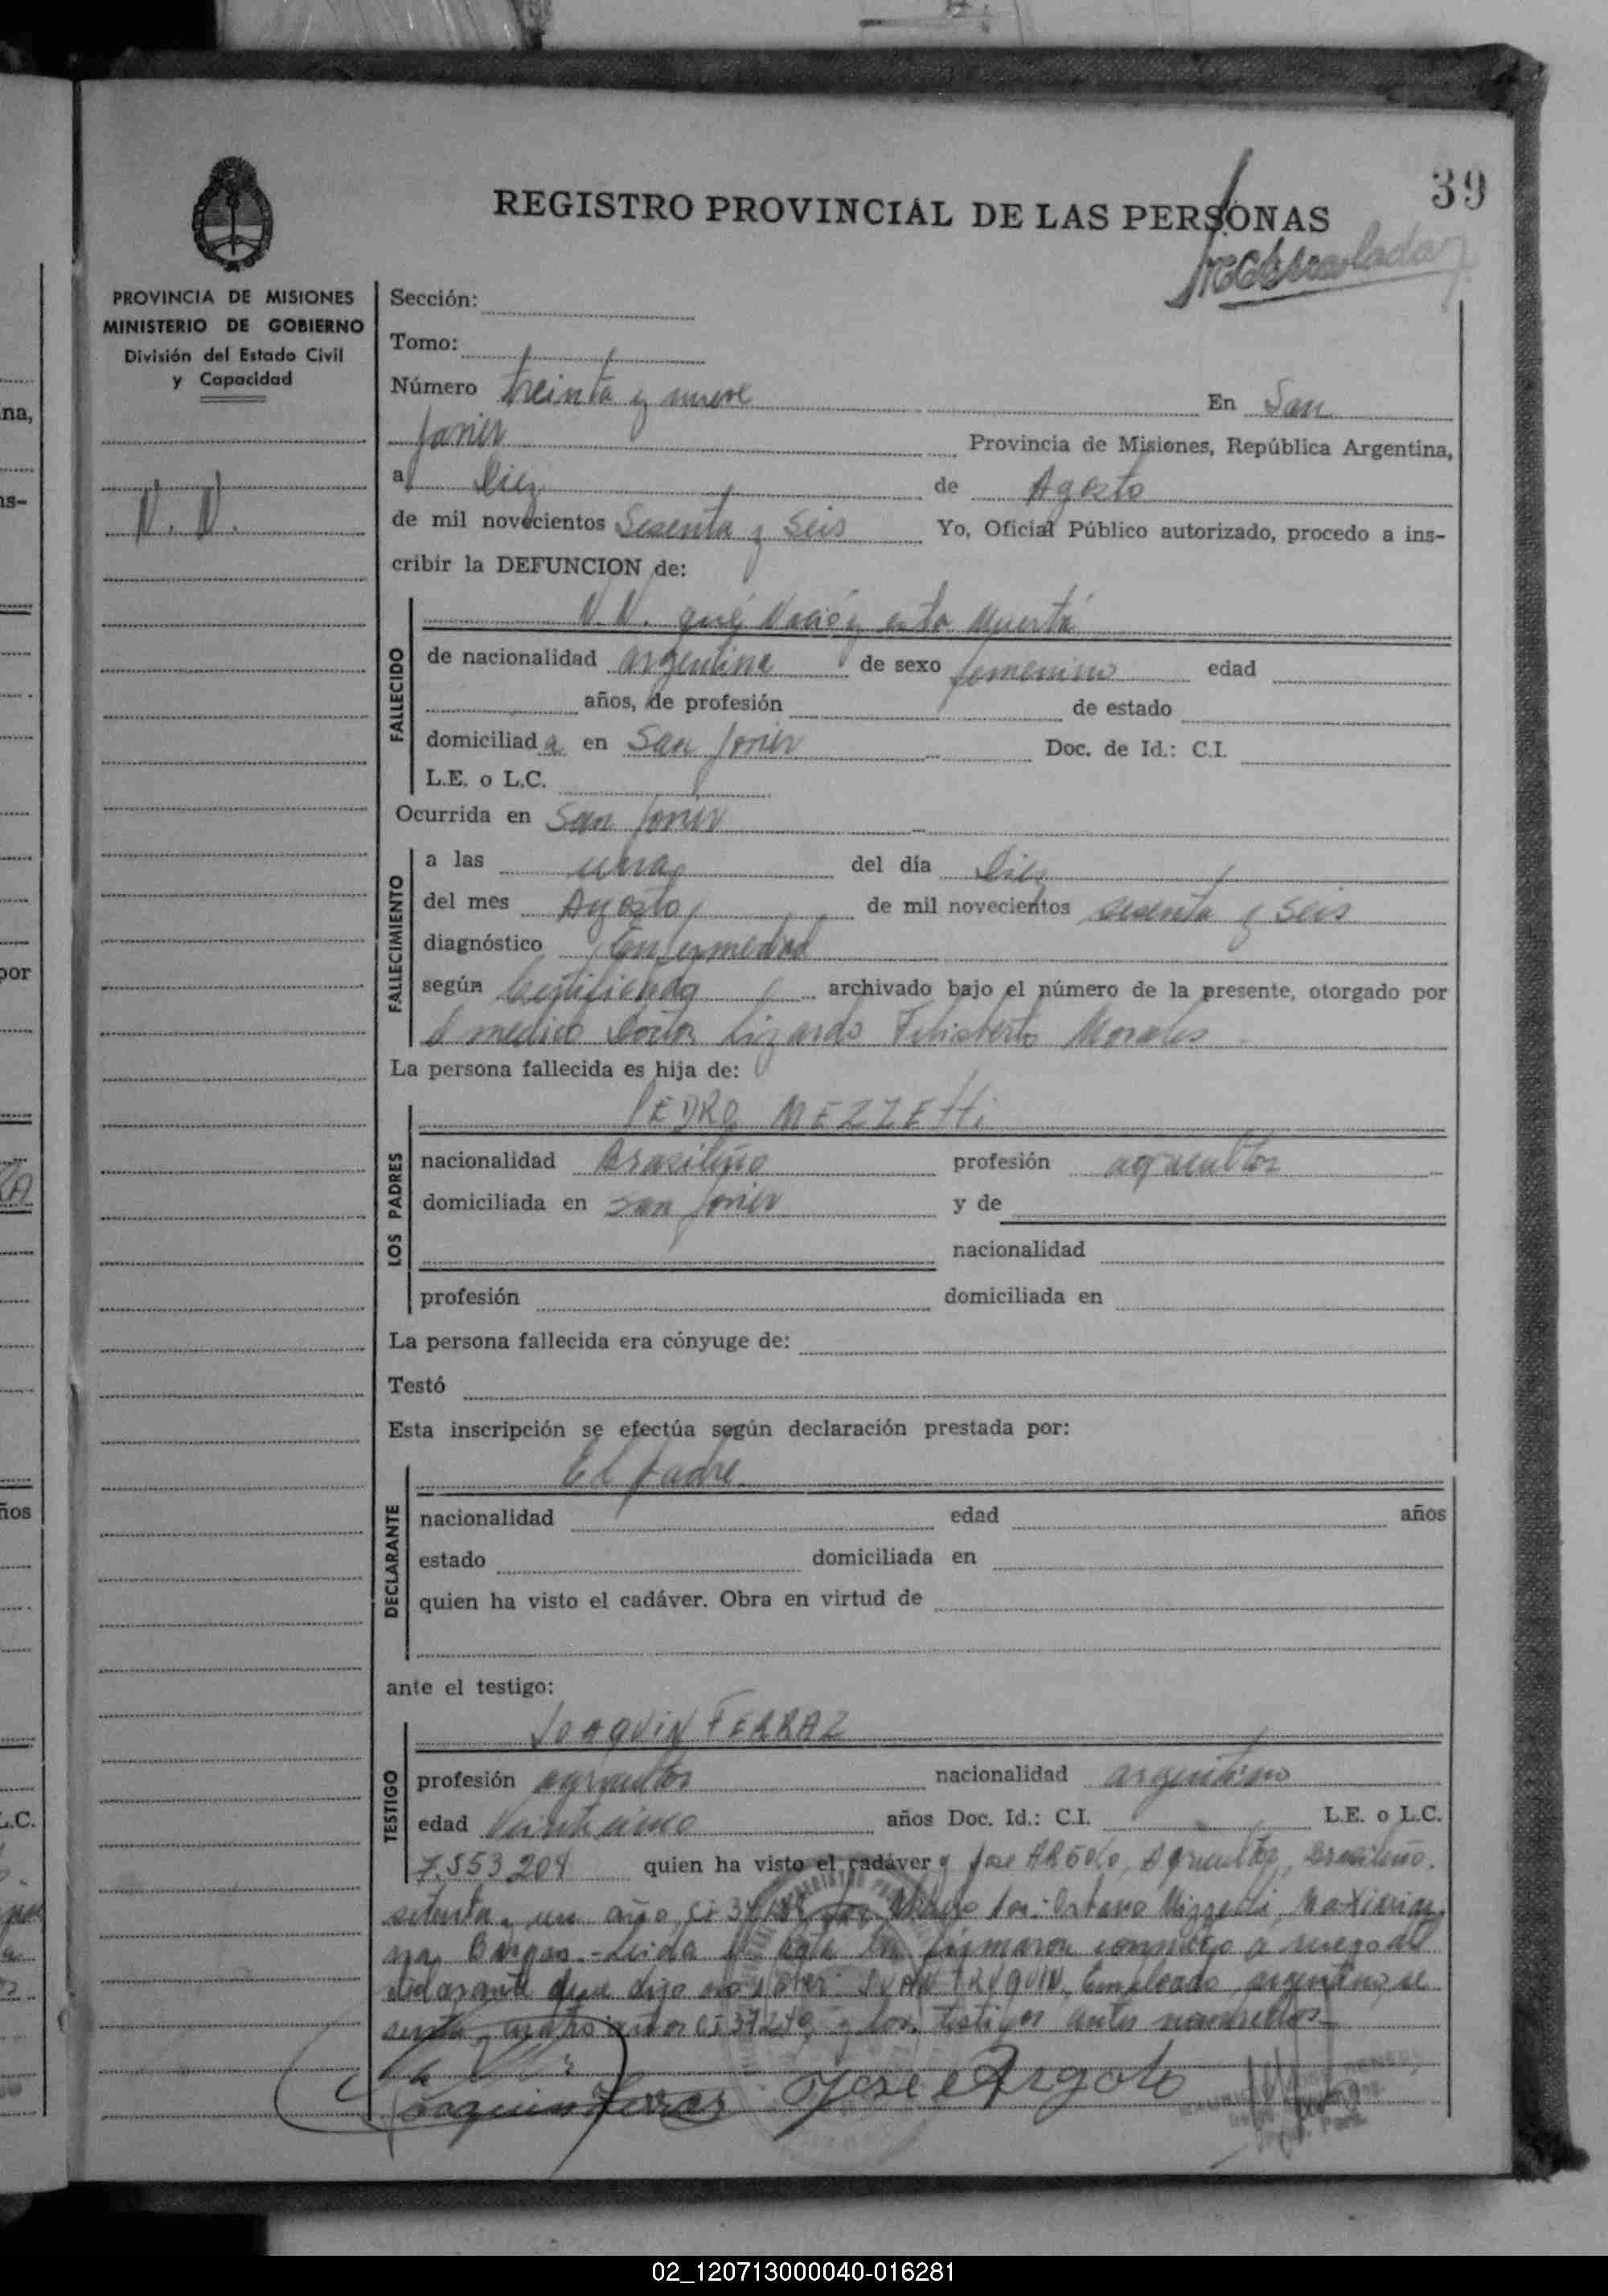 39
REGISTRO PROVINCIAL DE LAS PERSONAS
PROVINCIA DE MISIONES
MINISTERIO DE GOBIERNO
División del Estado Civil
y Capacidad
N. N.
Sección:
Tomo:
Número treinta y nueve En San
Javier Provincia de Misiones, República Argentina,
a diez de Agosto
de mil novecientos Sesenta y Seis Yo, Oficial Público autorizado, procedo a ins-
cribir la DEFUNCION de:
FALLECIDO
N.N. que Nació muerta
de nacionalidad argentina de sexo femenino edad
años, de profesión de estado
domiciliada en San Javier Doc. de Id.: C.I.
L.E. o L.C.
Ocurrida en San Javier
FALLECIMIENTO
a las una del día diez
del mes Agosto de mil novecientos sesenta y Seis
diagnóstico Enfermedad
según Certificado archivado bajo el número de la presente, otorgado por
el medico Doctor Lizardo Filisberto Morales
La persona fallecida es hija de:
LOS PADRES
PEDRO MEZZEtti
nacionalidad Brasileño profesión agricultor
domiciliada en San Javier y de
nacionalidad
profesión domiciliada en
La persona fallecida era cónyuge de:
Testó
Esta inscripción se efectúa según declaración prestada por:
DECLARANTE
El padre
nacionalidad edad años
estado domiciliada en
quien ha visto el cadáver. Obra en virtud de
ante el testigo:
TESTIGO
JOAQUIN FERRAZ
profesión agricultor nacionalidad argentino
edad Veinticinco años Doc. Id.: C.I. L.E. o L.C.
7.553.204 quien ha visto el cadáver y Jose ARGOLO, Agricultor, Brasileño,
setenta y un año CI
Leida el acta la firmaron conmigo a ruego del
declarante que dijo no JUAN TRUQUIN, Empleado, argentino, se
senta y años CI y los testigos antes nombrados
Joaquin Ferraz Jose Argolo
02_120713000040-016281